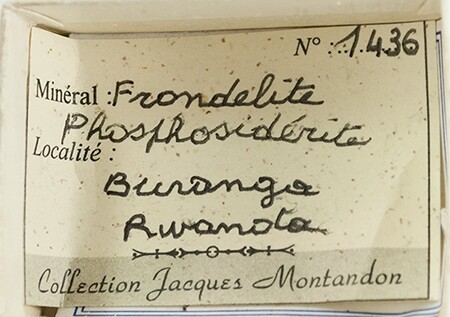 N° : 1.436
Minéral : Frondelite
Phosphosidérite
Localité :
Buranga
Rwanda
Collection Jacques Montandon